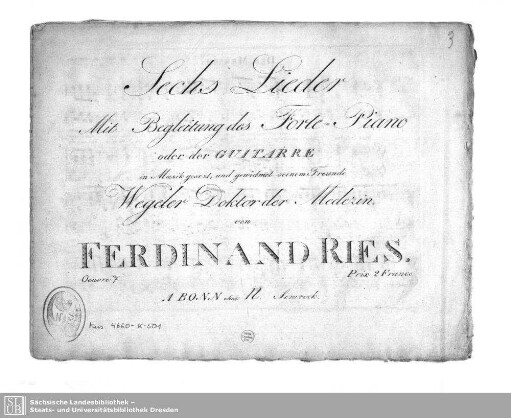 3
Sechs Lieder
Mit Begleitung des Forte-Piano
oder der GUITARRE
in Musik gesezt, und gewidmet seinem Freunde
Wegeler Doktor der Medezin,
von
FERDINAND RIES.
Oeuvre 7 Prix 2 Francs
A BONN chéz N. Simrock.
Mus. 4660-K-501
SLUB
Sächsische Landesbibliothek –
Staats- und Universitätsbibliothek Dresden